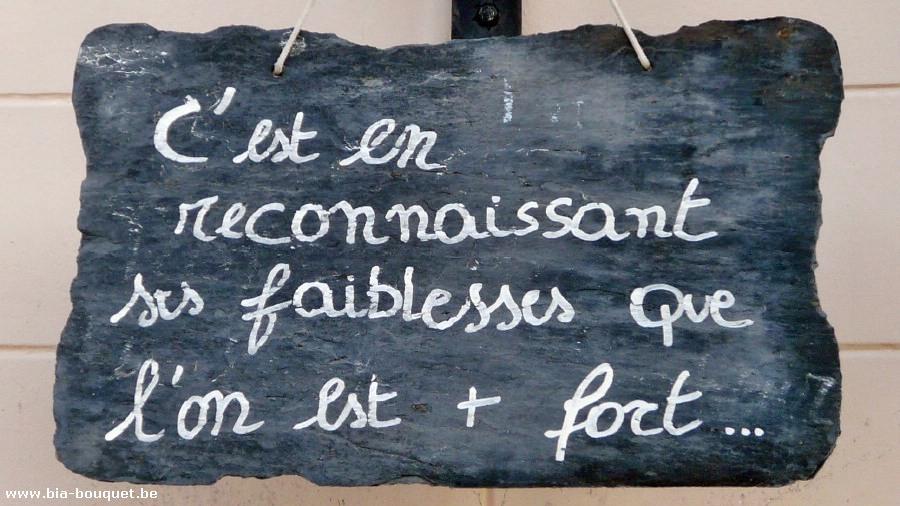 C'est en
reconnaissant
ses faiblesses que
l'on est + fort...
www.bia-bouquet.be